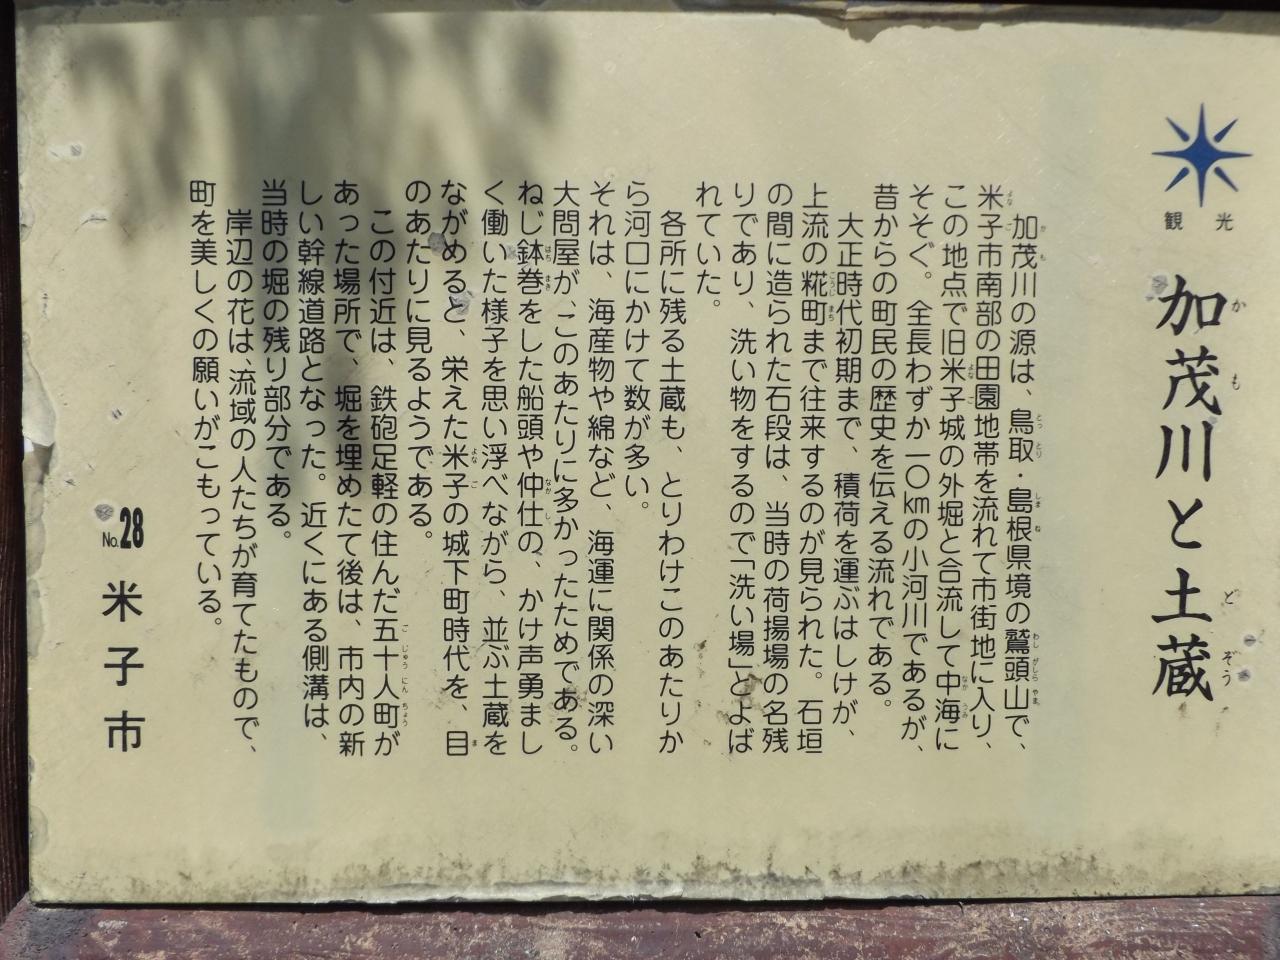 観光
加茂川と土蔵
加茂川の源は、鳥取・島根県境の鷲頭山で、
米子市南部の田園地帯を流れて市街地に入り、
この地点で旧米子城の外堀と合流して中海に
そそぐ。全長わずか一〇kmの小河川であるが、
昔からの町民の歴史を伝える流れである。
大正時代初期まで、積荷を運ぶはしけが、
上流の糀町まで往来するのが見られた。石垣
の間に造られた石段は、当時の荷揚場の名残
りであり、洗い物をするので「洗い場」とよば
れていた。
各所に残る土蔵も、とりわけこのあたりか
ら河口にかけて数が多い。
それは、海産物や綿など、海運に関係の深い
大問屋が、このあたりに多かったためである。
ねじ鉢巻をした船頭や仲仕の、かけ声勇まし
く働いた様子を思い浮べながら、並ぶ土蔵を
ながめると、栄えた米子の城下町時代を、目
のあたりに見るようである。
この付近は、鉄砲足軽の住んだ五十人町が
あった場所で、堀を埋めたて後は、市内の新
しい幹線道路となった。近くにある側溝は、
当時の堀の残り部分である。
岸辺の花は、流域の人たちが育てたもので、
町を美しくの願いがこもっている。
No.28 米子市